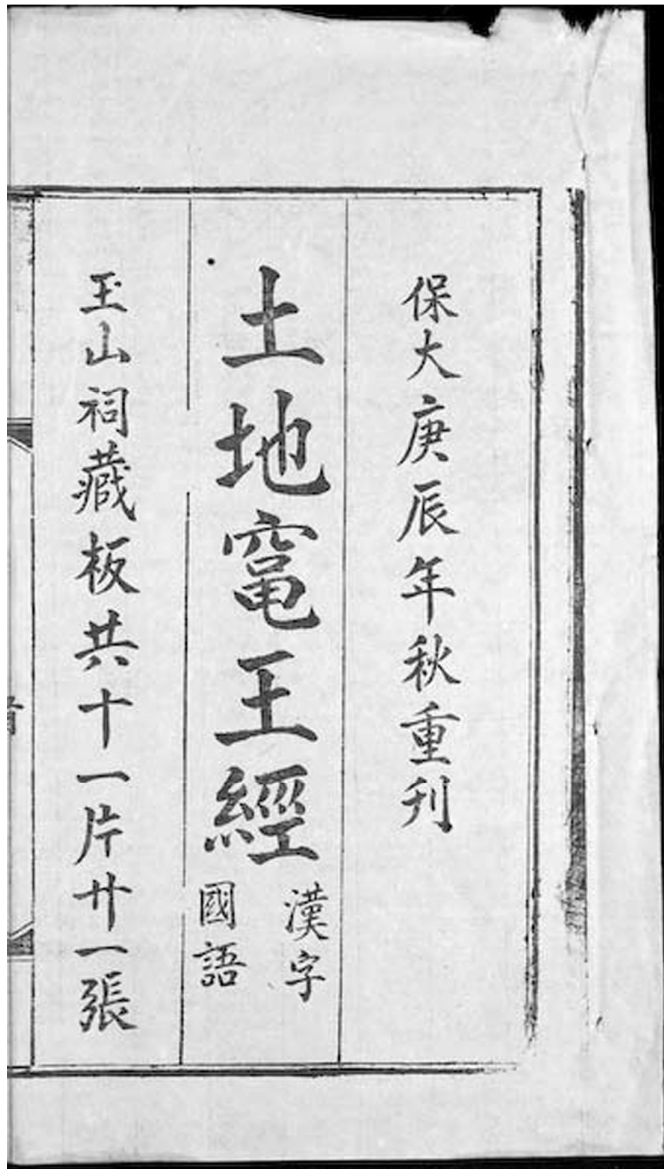 保大庚辰年秋重刊
土地竃王經
漢字
國語
玉山祠藏板共十一片廿一張